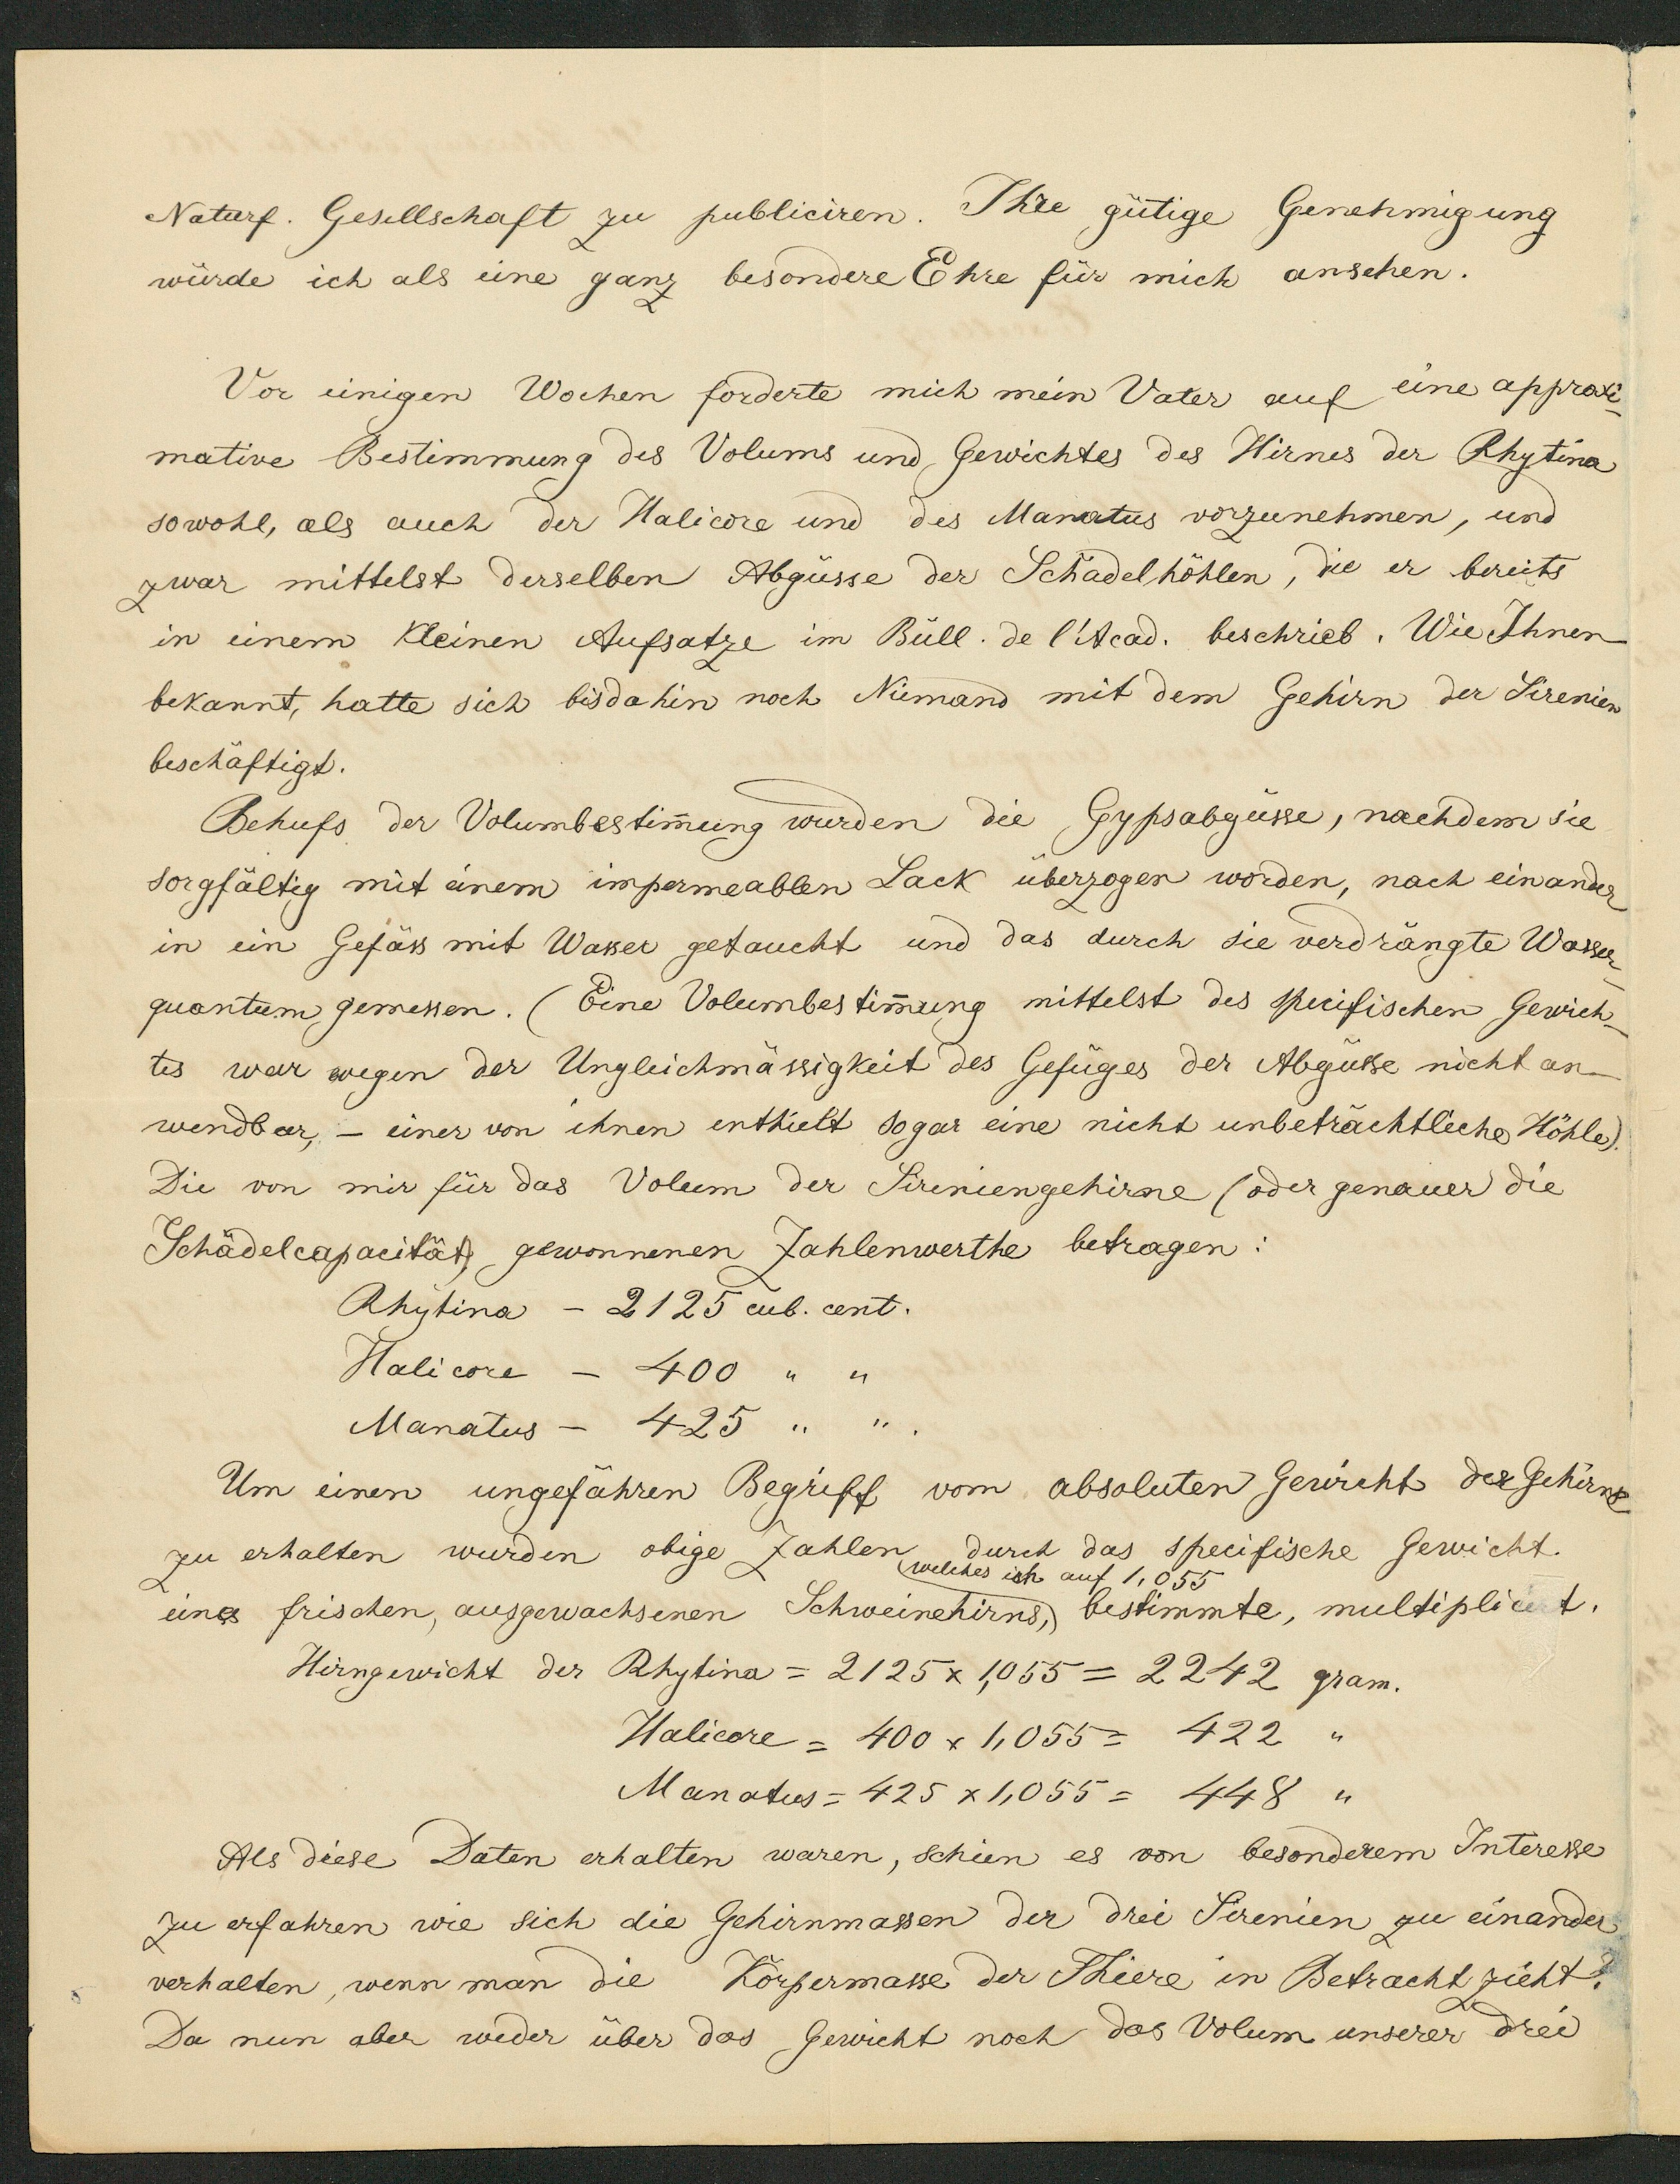 Naturf. Gesellschaft zu publiciren. Ihre gütige Genehmigung
würde ich als eine ganz besondere Ehre für mich ansehen.
Vor einigen Wochen forderte mich mein Vater auf eine approxi-
mative Bestimmung des Volums und Gewichtes des Hirnes der Rhytina
sowohl, als auch der Halicore und des Manatus vorzunehmen, und
zwar mittelst derselben Abgüsse der Schädelhöhlen, die er bereits
in einem kleinen Aufsatze im Büll. de l'Acad. beschrieb. Wie Ihnen
bekannt, hatte sich bisdahin noch Niemand mit dem Gehirn der Sirenien
beschäftigt.
Behufs der Volumbestim̄ung wurden die Gypsabgüsse, nachdem sie
sorgfältig mit einem impermeablen Lack überzogen worden, nach einander
in ein Gefäss mit Wasser getaucht und das durch sie verdrängte Wasser-
quantum gemessen. (Eine Volumbestim̄ung mittelst des specifischen Gewich-
tes war wegen der Ungleichmässigkeit des Gefüges der Abgüsse nicht an-
wendbar, – einer von ihnen enthielt sogar eine nicht unbeträchtliche Höhle).
Die von mir für das Volum der Sireniengehirne (oder genauer die
Schädelcapacität) gewonnenen Zahlenwerthe betragen:
Rhytina – 2125 cub. cent.
Halicore – 400 " "
Manatus – 425 " ".
Um einen ungefähren Begriff vom absoluten Gewicht der Gehirne
zu erhalten wurden obige Zahlen durch das specifische Gewicht
welches ich auf 1,055
eines frischen, ausgewachsenen Schweinehirns, bestimmte, multiplicirt.
Hirngewicht der Rhytina = 2125 x 1,055 = 2242 gram.
Halicore = 400 x 1,055 = 422 "
Manatus = 425 x 1,055 = 448 "
Als diese Daten erhalten waren, schien es von besonderem Interesse
zu erfahren wie sich die Gehirnmassen der drei Sirenien zu einander
verhalten, wenn man die Körpermasse der Thiere in Betracht zieht?
Da nun aber weder über das Gewicht noch das Volum unserer drei